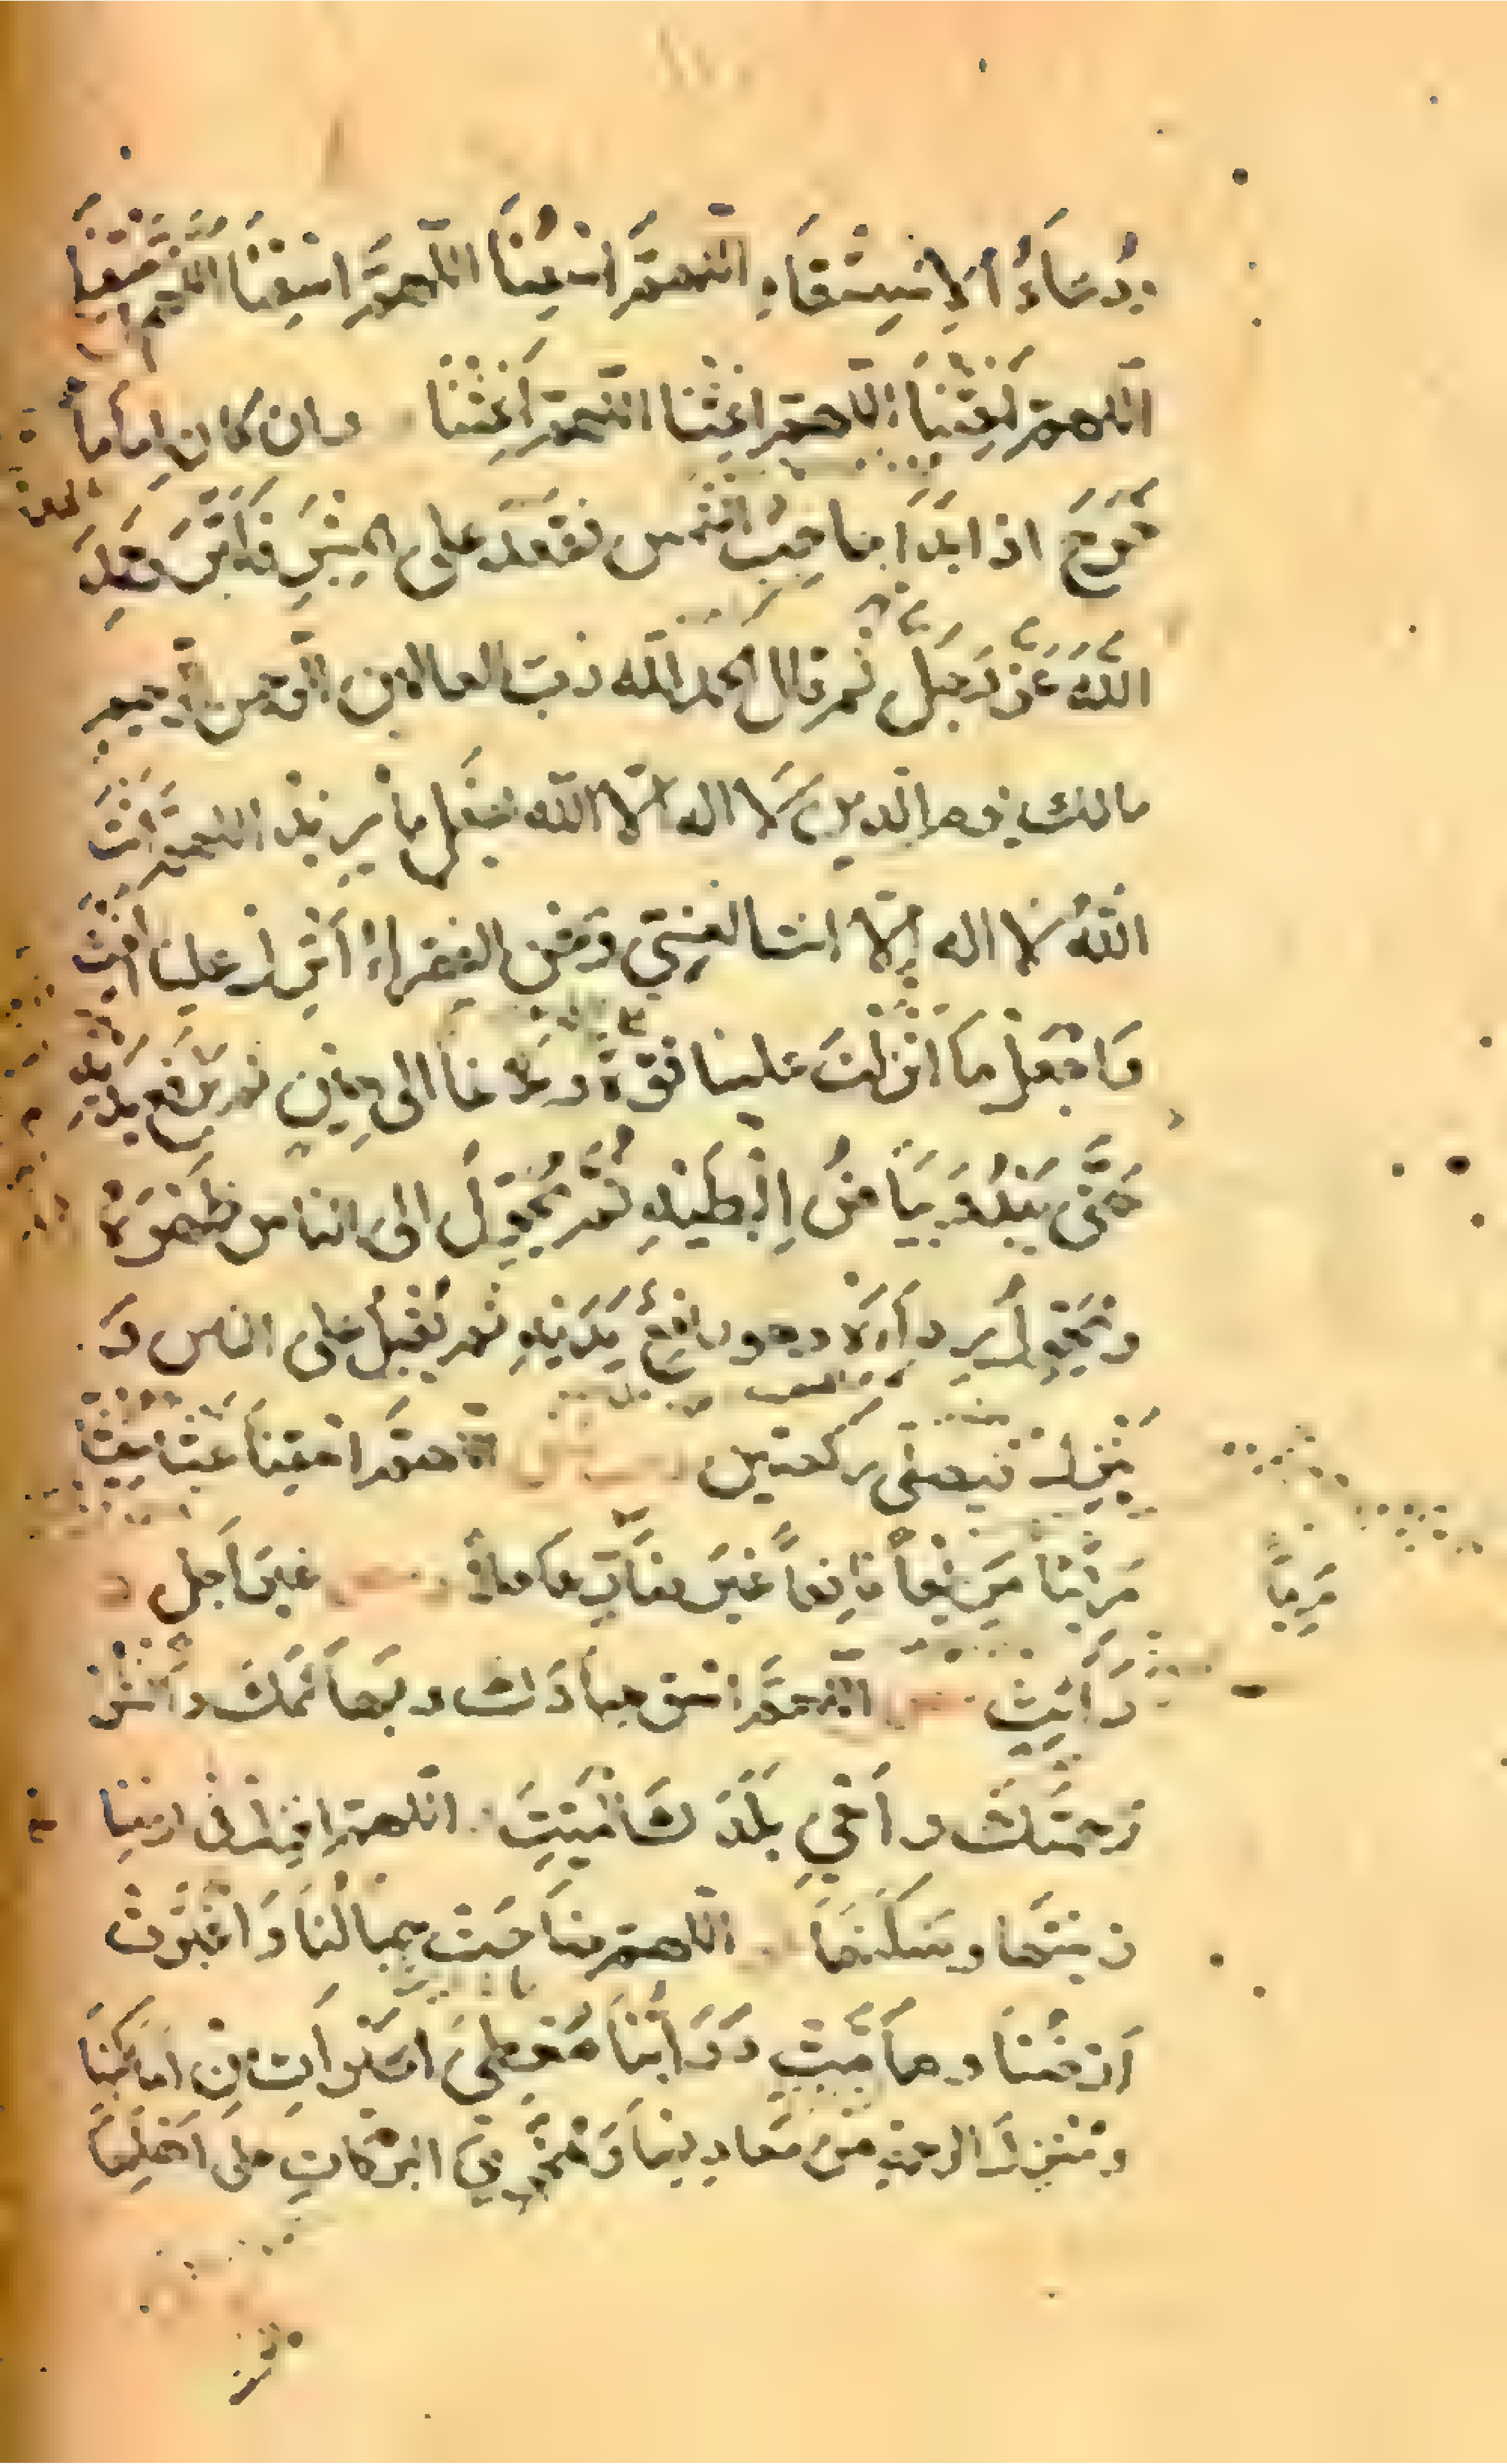 دُعَاءُ الاِسْتِسْقَاءِ اللهمَّ اسْقِنَا اللهمَّ اسْقِنَا اللهمَّ اسْقِنَا
اللهمَّ اَغِثْنَا اللهمَّ اَغِثْنَا اللهمَّ اَغِثْنَا وان كان اِمَاماً
خَرَجَ اذا بَدَا حاجِبُ الشَّمسِ فقَعَدَ على المِنْبَرِ فكَبَّرَ وحَمِدَ
اللهَ عَزَّ وَجَلَّ ثم قال الحمد لله ربّ العالمين الرّحمن الرّحيم
مالك يوم الدين لا اله الّا الله يفعل ما يريد اللهمَّ اَنْتَ
اللهُ لا اله الّا انت الغنيّ ونحن الفقراء اَنْزِلْ علينا الغيث
وَاجْعَلْ مَا اَنْزَلْتَ علينا قوّةً وبلاغا الى حينٍ ثم يَرْفَعُ يَدَيْهِ
حَتَّى يَبْدُوَ بَيَاضُ اِبْطَيْهِ ثُمَّ يُحَوِّلُ الى الناس ظَهْرَهُ
ويُحَوِّلُ رِدَاءَهُ وهو رافِعٌ يَدَيْهِ ثم يُقْبِلُ على الناس وَ
يَنْزِلُ فيصلّى ركعتين اللهمَّ اسْقِنَا غَيْثاً مُغِيثاً
مَرِيْئاً مَرِيْعاً نافِعاً غَيْرَ ضَارٍّ عَاجلاً غيرَ اٰجلٍ
مَرِيعاً
رَائِثٍ اللهمَّ اسْقِ عِبَادَكَ وبَهَائِمَكَ وانْشُرْ
رَحْمَتَكَ واَحْيِ بَلَدَكَ المَيِّتَ اللهمَّ اَنْزِلْ فى ارضِنا
زينَتَها وسَكَنَهَا اللهمَّ ضَاحَتْ جِبالُنَا وَاغْبَرَّتْ
اَرْضُنَا وهَامَتْ دَوَابُّنَا مُعْطِيَ الخَيْرَاتِ مِنْ اَمَاكِنِهَا
ومُنْزِلَ الرحمةِ مِنْ مَعَادِنِهَا وَمُجْرِيَ البَرَكَاتِ على اَهْلِهَا